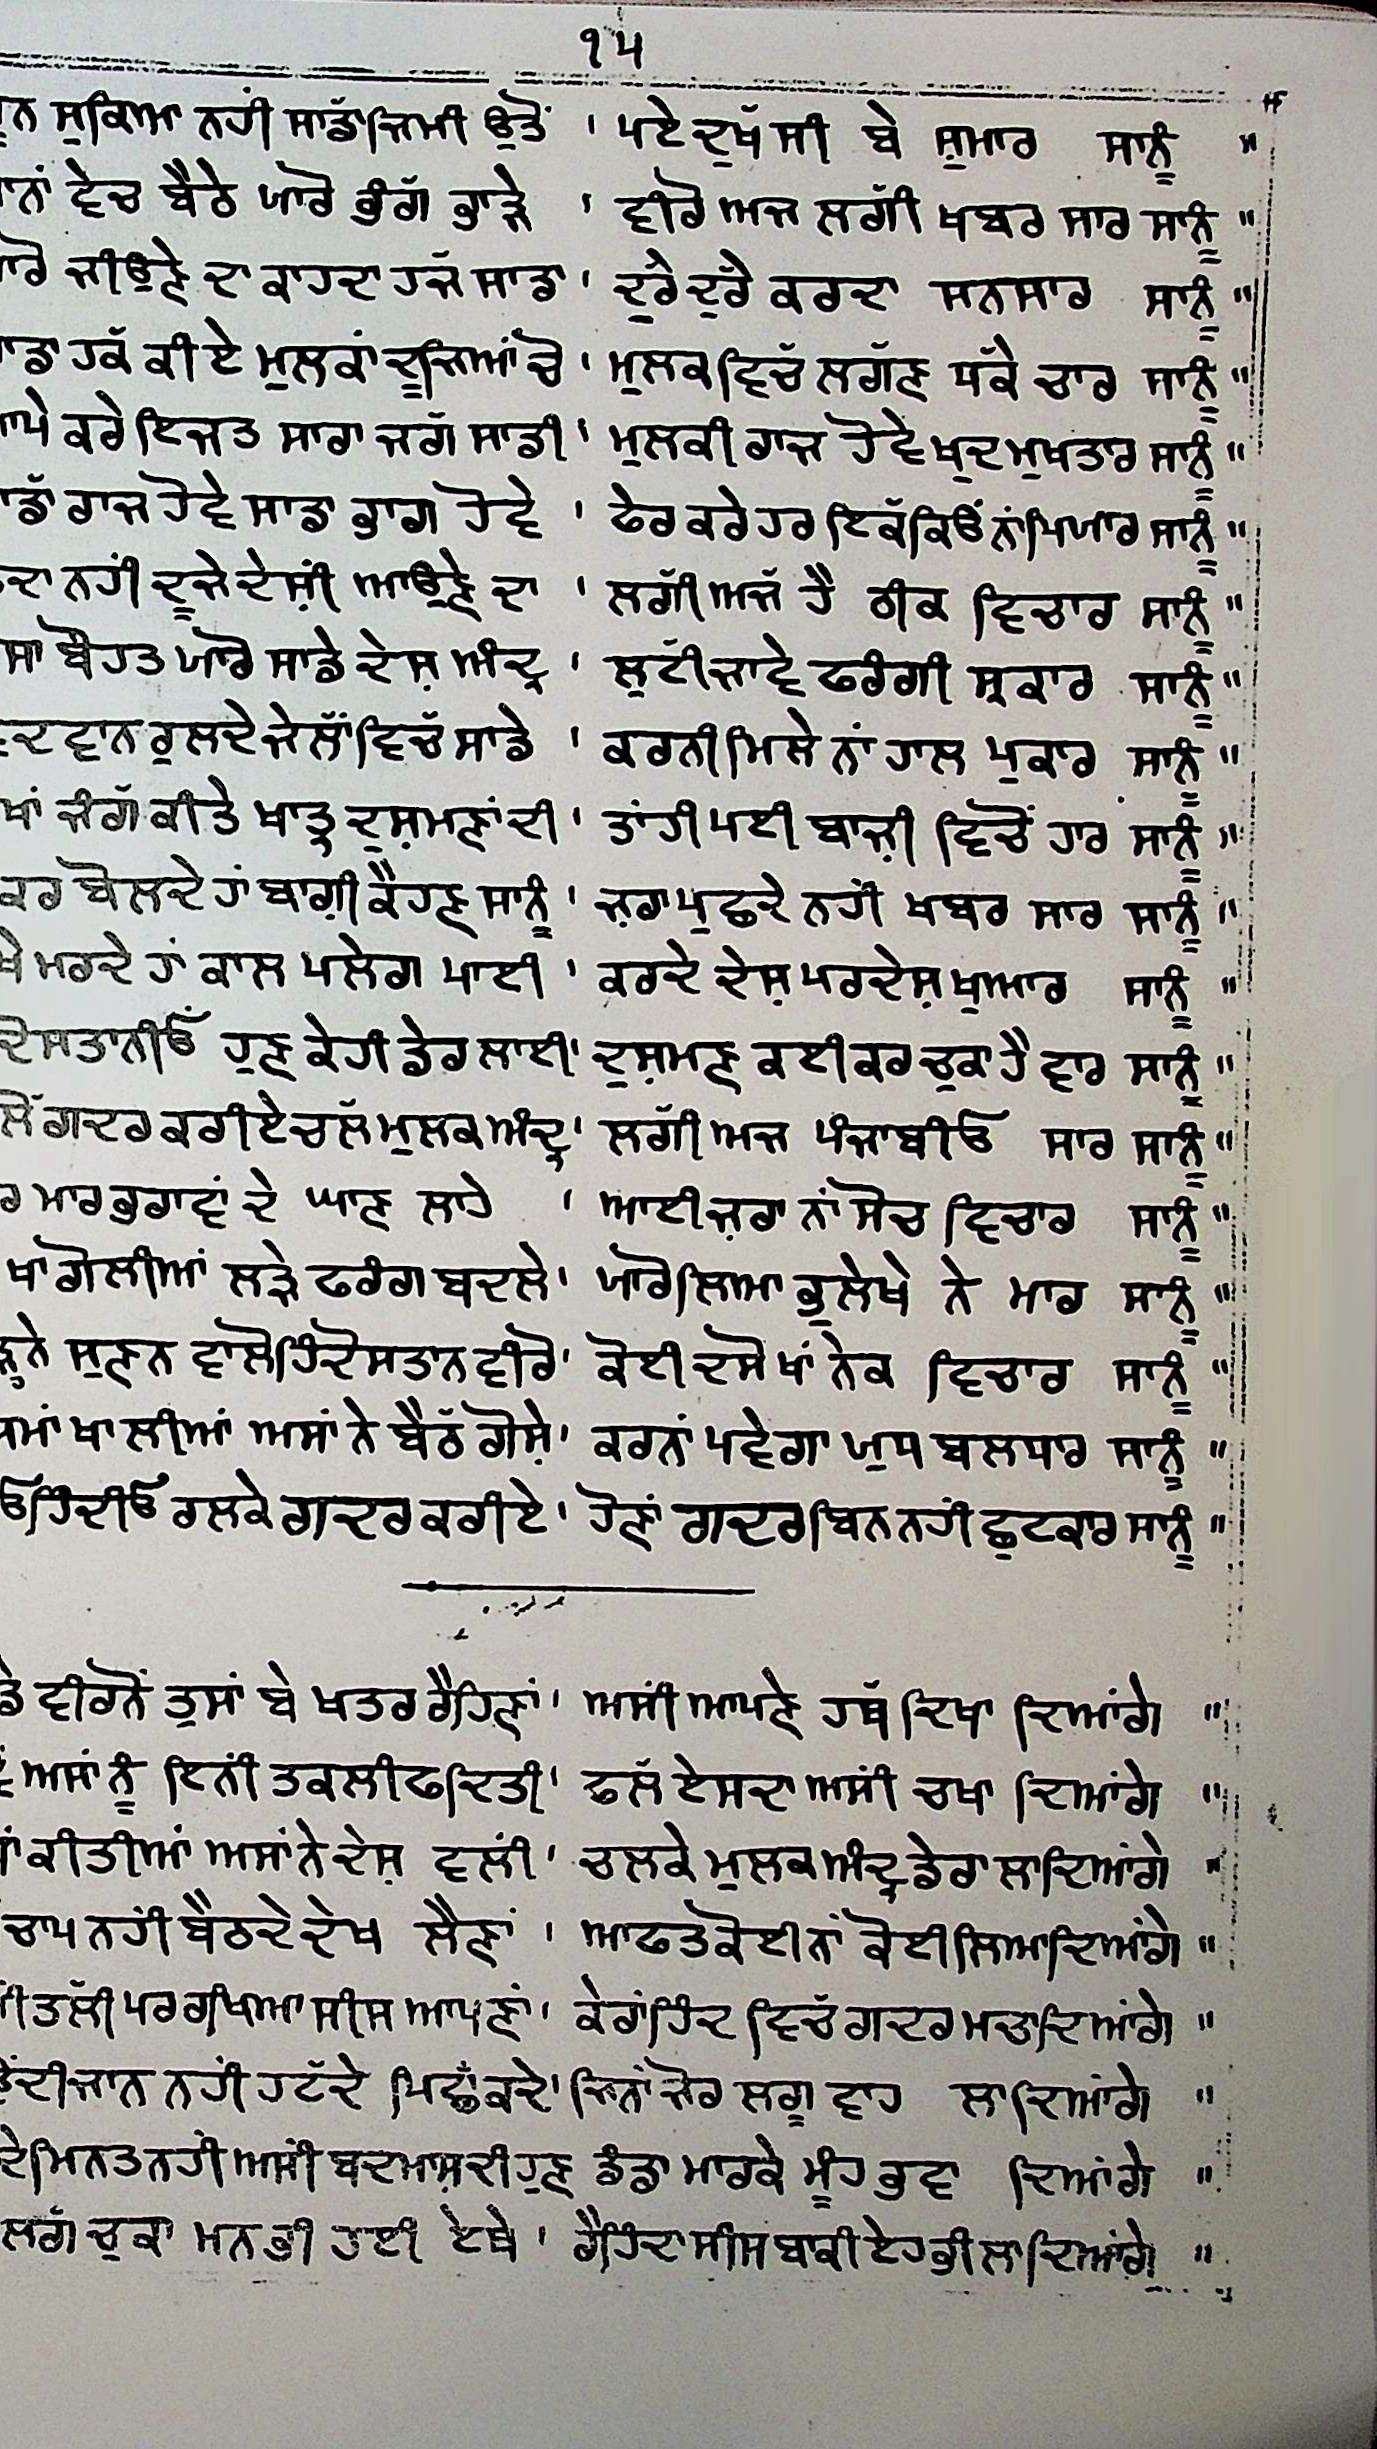 ੧੫
ਸੁਕਿਆ ਨਹੀਂ ਸਾਡਾ ਜਿਮੀ ਉਤੋਂ । ਪਏ ਦੁਖੱ ਸੀ ਬੇ ਸ਼ੁਮਾਰ ਸਾਨੂੰ "
ਵੇਚ ਬੈਠੇ ਯਾਰੋ ਭੰਗੱ ਭਾੜੇ । ਵੀਰੋ ਅਜ ਲਗੱੀ ਖਬਰ ਸਾਰ ਸਾਨੂੰ "
ਜੀਉਣੇ ਦਾ ਕਾਹਦਾ ਹਜੱ ਸਾਡਾ । ਦੁਰੇ ਦੁਰੇ ਕਰਦਾ ਸਨਸਾਰ ਸਾਨੂੰ "
ਹਕੱ ਕੀ ਏ ਮੁਲਕਾਂ ਦੂਜਿਆਂ ਚੋ । ਮੁਲਕ ਵਿਚੱ ਲਗੱਣ ਧੱਕੇ ਚਾਰ ਸਾਨੂੰ "
ਕਰੇ ਇਜਤ ਸਾਰਾ ਜਗੱ ਸਾਡੀ । ਮੁਲਕੀ ਰਾਜ ਹੋਵੇ ਖੁਦ ਮੁਖਤਾਰ ਸਾਨੂੰ "
ਰਾਜ ਹੋਵੇ ਸਾਡਾ ਭਾਗ ਹੋਵੇ । ਫੇਰ ਕਰੇ ਹਰ ਇਕੱ ਕਿਓਂ ਨਾਂ ਪਿਯਾਰ ਸਾਨੂੰ "
ਨਹੀਂ ਦੂਜੇ ਦੇਸ਼ੀਂ ਆਉਣੇ ਦਾ । ਲਗੱੀ ਅਜੱ ਹੈ ਠੀਕ ਵਿਚਾਰ ਸਾਨੂੰ "
ਬੌਹਤ ਯਾਰੋ ਸਾਡੇ ਦੇਸ਼ ਅੰਦ੍ਰ । ਲੁਟੱੀ ਜਾਵੇ ਫਰੰਗੀ ਸ੍ਰਕਾਰ ਸਾਨੂੰ "
ਰੁਲਦੇ ਜੇਲਾਂ ਵਿਚੱ ਸਾਡੇ । ਕਰਨੀ ਮਿਲੇ ਨਾਂ ਹਾਲ ਪੁਕਾਰ ਸਾਨੂੰ "
ਜੰਗੱ ਕੀਤੇ ਖਾਤ੍ਰ ਦੁਸ਼ਮਣਾਂ ਦੀ । ਤਾਂਹੀ ਪਈ ਬਾਜ਼ੀ ਵਿਚੋਂ ਹਾਰ ਸਾਨੂੰ "
ਬੋਲਦੇ ਹਾਂ ਬਾਗ਼ੀ ਕੈਹਣ ਸਾਨੂੰ । ਜ਼ਰਾ ਪੁਛਦੇ ਨਹੀਂ ਖਬਰ ਸਾਰ ਸਾਨੂੰ "
ਮਰਦੇ ਹਾਂ ਕਾਲ ਪਲੇਗ ਪਾਈ । ਕਰਦੇ ਦੇਸ਼ ਪਰਦੇਸ਼ ਖੁਆਰ ਸਾਨੂੰ "
ਹੁਣ ਕੇਹੀ ਡੇਰ ਲਾਈ । ਦੁਸ਼ਮਣ ਕਈ ਕਰ ਚੁਕਾ ਹੈ ਵਾਰ ਸਾਨੂੰ "
ਗਦਰ ਕਰੀਏ ਚਲੱ ਮੁਲਕ ਅੰਦ੍ਰ । ਲਗੱੀ ਅਜ ਪੰਜਾਬੀਓ ਸਾਰ ਸਾਨੂੰ "
ਮਾਰ ਭਰਾਵਾਂ ਦੇ ਘਾਣ ਲਾਹੇ । ਆਈ ਜ਼ਰਾ ਨਾਂ ਸੋਚ ਵਿਚਾਰ ਸਾਨੂੰ "
ਖਾ ਗੋਲੀਆਂ ਲੜੇ ਫਰੰਗ ਬਦਲੇ । ਯਾਰੋ ਲਿਆ ਭੁਲੇਖੇ ਨੇ ਮਾਰ ਸਾਨੂੰ "
ਸੁਣਨ ਵਾਲੋ ਹਿੰਦੋਸਤਾਨ ਵੀਰੋ । ਕੋਈ ਦਸੋ ਖਾਂ ਨੇਕ ਵਿਚਾਰ ਸਾਨੂੰ "
ਖਾਲੀਆਂ ਅਸਾਂ ਨੇ ਬੈਠੱ ਗੋਸ਼ੇ । ਕਰਨਾਂ ਪਵੇਗਾ ਯੁਧ ਬਲਧਾਰ ਸਾਨੂੰ "
ਹਿੰਦੀਓ ਰਲਕੇ ਗਦਰ ਕਰੀਏ । ਹੋਣਾਂ ਗਦਰ ਬਿਨ ਨਹੀਂ ਛੁਟਕਾਰ ਸਾਨੂੰ "
ਵੀਰਨੋਂ ਤੁਸਾਂ ਬੇ ਖਤਰ ਰੈਹਿਣਾਂ । ਅਸੀਂ ਆਪਣੇ ਹਥੱ ਦਿਖਾ ਦਿਆਂਗੇ "
ਅਸਾਂ ਨੂੰ ਇਨੀਂ ਤਕਲੀਫ ਦਿਤੀ । ਫਲੱ ਏਸਦਾ ਅਸੀਂ ਚਖਾ ਦਿਆਂਗੇ "
ਕੀਤੀਆਂ ਅਸਾਂ ਨੇ ਦੇਸ਼ ਵਲੀਂ । ਚਲਕੇ ਮੁਲਕ ਅੰਦ੍ਰ ਡੇਰਾ ਲਾ ਦਿਆਂਗੇ "
ਚਾਪ ਨਹੀਂ ਬੈਠਦੇ ਦੇਖ ਲੈਣਾਂ । ਆਫਤ ਕੋਈ ਨਾਂ ਕੋਈ ਲਿਆ ਦਿਆਂਗੇ "
ਤਲੱੀ ਪਰ ਰਖਿਆ ਸੀਸ ਆਪਣਾਂ । ਕੇਰਾਂ ਹਿੰਦ ਵਿਚੱ ਗਦਰ ਮਚਾ ਦਿਆਂਗੇ "
ਜਾਨ ਨਹੀਂ ਹਟੱਦੇ ਪਿਛਾਂ ਕਦੇ । ਜਿਨਾਂ ਜੋਰ ਲਗੂ ਵਾਹ ਲਾ ਦਿਆਂਗੇ "
ਮਿਨਤ ਨਹੀਂ ਅਸੀਂ ਬਦਮਾਸ਼ ਦੀ ਹੁਣ ਡੰਡਾ ਮਾਰਕੇ ਮੂੰਹ ਭੁਵਾ ਦਿਆਂਗੇ "
ਲਗੱ ਚੁਕਾ ਮਨ ਭੀ ਹਈ ਏਥੇ । ਰੈਹਿੰਦਾ ਸੀਸ ਬਾਕੀ ਏਹ ਭੀ ਲਾ ਦਿਆਂਗੇ "